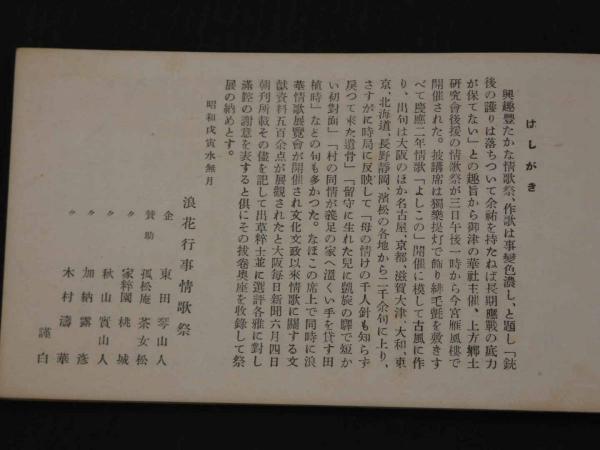 はしがき
興趣豐たかな情歌祭、作歌は事變色濃し、と題し「銃
後の護りは落ちついて余祐を持たねば長期應戰の底力
が保てない」との趣旨から御津の華社主催、上方鄕土
研究會後援の情歌祭が三日午後一時から今宮雁風樓で
開催された。披講席は獨樂提灯で飾り緋毛氈を敷きす
べて慶應二年情歌「よしこの」開催に模して古風に作
り、出句は大阪のほか名古屋、京都、滋賀大津、大和、東
京、北海道、長野靜岡、濱松の各地から二千余句に上り、
さすがに時局に反映して「母の情けの千人針も知らず
戾つて來た遺骨」「留守に生れた兒に凱旋の驛で短か
い初對面」「村の同情が義足の家へ溫くい手を貸す田
植時」などの句も多かつた。なほこの席上で同時に浪
華情歌展覽會が開催され文化文政以來情歌に關する文
獻資料五百余点が展觀されたと大阪每日新聞六月四日
朝刊所載その儘を記して出草粹士並に選評各雅に對し
滿腔の謝意を表すると俱にその拔卷奧座を收錄して祭
展の納めとす。
昭和戊寅水無月
浪花行事情歌祭
企 東田琴山人
贊助 孤松庵茶女松
〃 家粹園桃城
〃 秋山賓山人
〃 加納露彥
〃 木村濤華
謹白